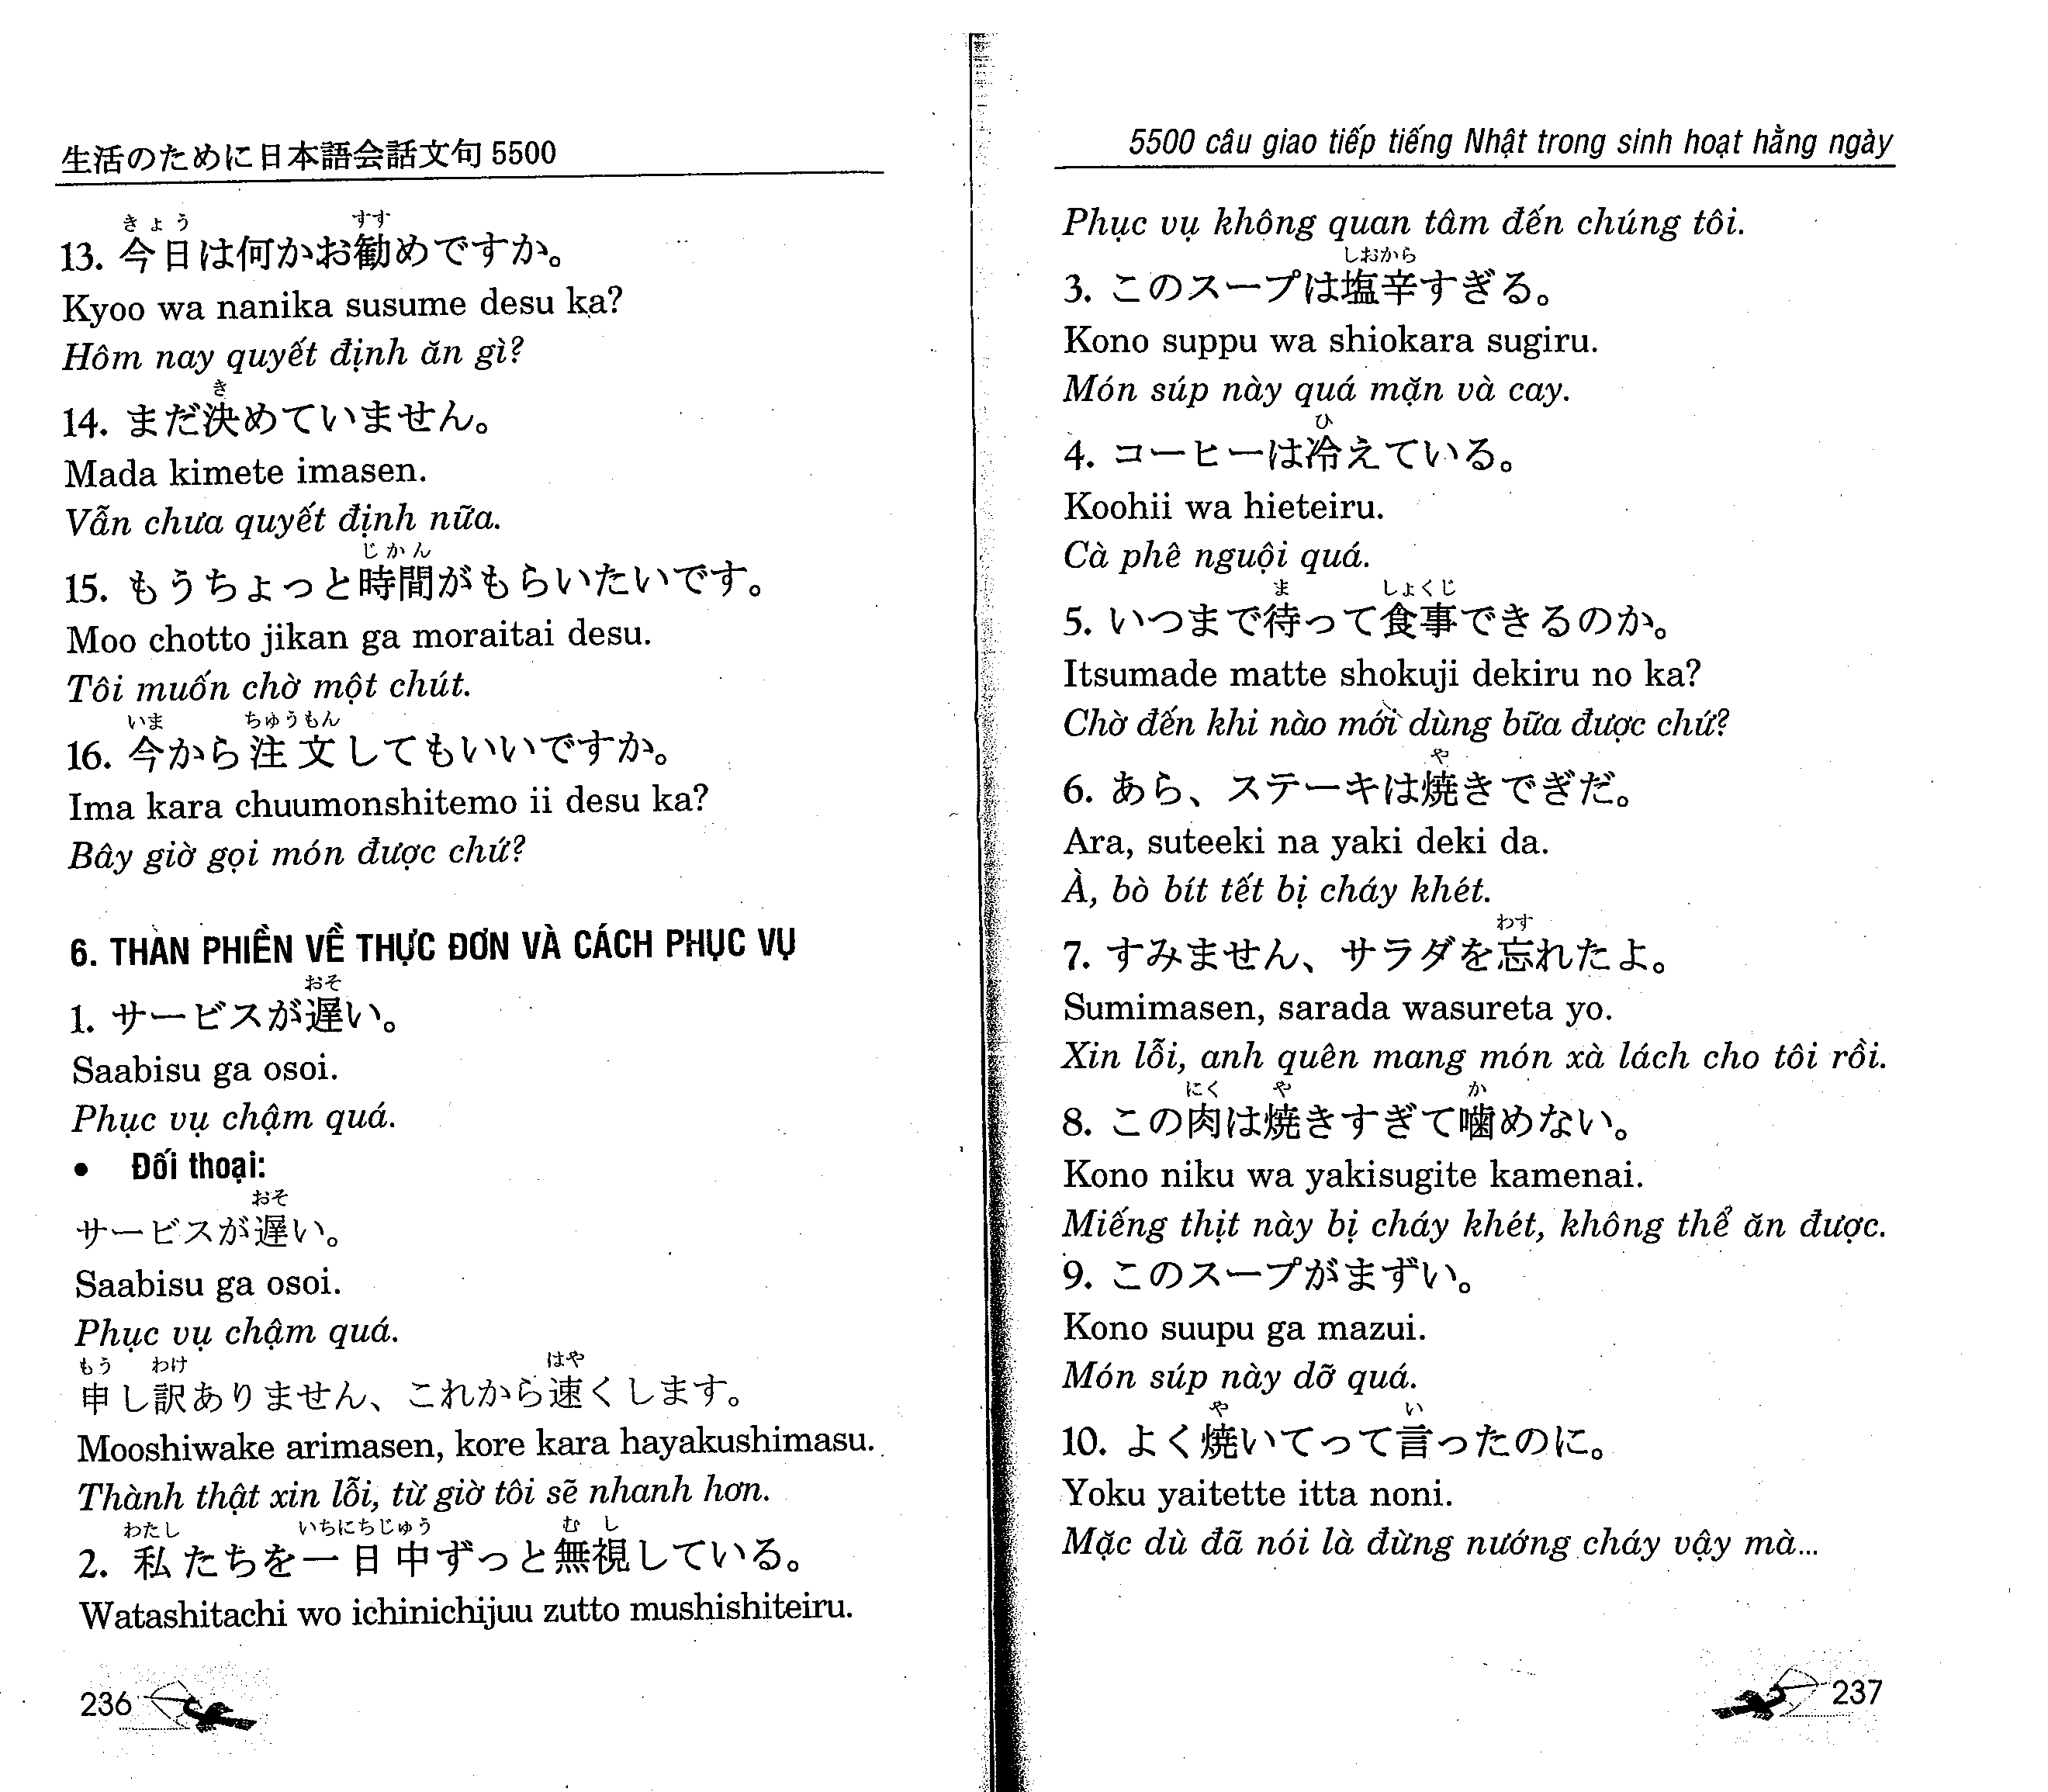 生活のために日本語会話文句 5500
きょう すす
13. 今日は何かお勧めですか。
Kyoo wa nanika susume desu ka?
Hôm nay quyết định ăn gì?
き
14. まだ決めていません。
Mada kimete imasen.
Vẫn chưa quyết định nữa.
じかん
15. もうちょっと時間がもらいたいです。
Moo chotto jikan ga moraitai desu.
Tôi muốn chờ một chút.
いま ちゅうもん
16. 今から注文してもいいですか。
Ima kara chuumonshitemo ii desu ka?
Bây giờ gọi món được chứ?
6. THAN PHIỀN VỀ THỰC ĐƠN VÀ CÁCH PHỤC VỤ
おそ
1. サービスが遅い。
Saabisu ga osoi.
Phục vụ chậm quá.
• Đối thoại:
おそ
サービスが遅い。
Saabisu ga osoi.
Phục vụ chậm quá.
もう わけ はや
申し訳ありません、これから速くします。
Mooshiwake arimasen, kore kara hayakushimasu.
Thành thật xin lỗi, từ giờ tôi sẽ nhanh hơn.
わたし いちにちじゅう む し
2. 私たちを一日中ずっと無視している。
Watashitachi wo ichinichijuu zutto mushishiteiru.
236
5500 câu giao tiếp tiếng Nhật trong sinh hoạt hằng ngày
Phục vụ không quan tâm đến chúng tôi.
しおから
3. このスープは塩辛すぎる。
Kono suppu wa shiokara sugiru.
Món súp này quá mặn và cay.
ひ
4. コーヒーは冷えている。
Koohii wa hieteiru.
Cà phê nguội quá.
ま しょくじ
5. いつまで待って食事できるのか。
Itsumade matte shokuji dekiru no ka?
Chờ đến khi nào mới dùng bữa được chứ?
や
6. あら、ステーキは焼きでぎだ。
Ara, suteeki na yaki deki da.
À, bò bít tết bị cháy khét.
わす
7. すみません、サラダを忘れたよ。
Sumimasen, sarada wasureta yo.
Xin lỗi, anh quên mang món xà lách cho tôi rồi.
にく や か
8. この肉は焼きすぎて噛めない。
Kono niku wa yakisugite kamenai.
Miếng thịt này bị cháy khét, không thể ăn được.
9. このスープがまずい。
Kono suupu ga mazui.
Món súp này dỡ quá.
や い
10. よく焼いてって言ったのに。
Yoku yaitette itta noni.
Mặc dù đã nói là đừng nướng cháy vậy mà...
237